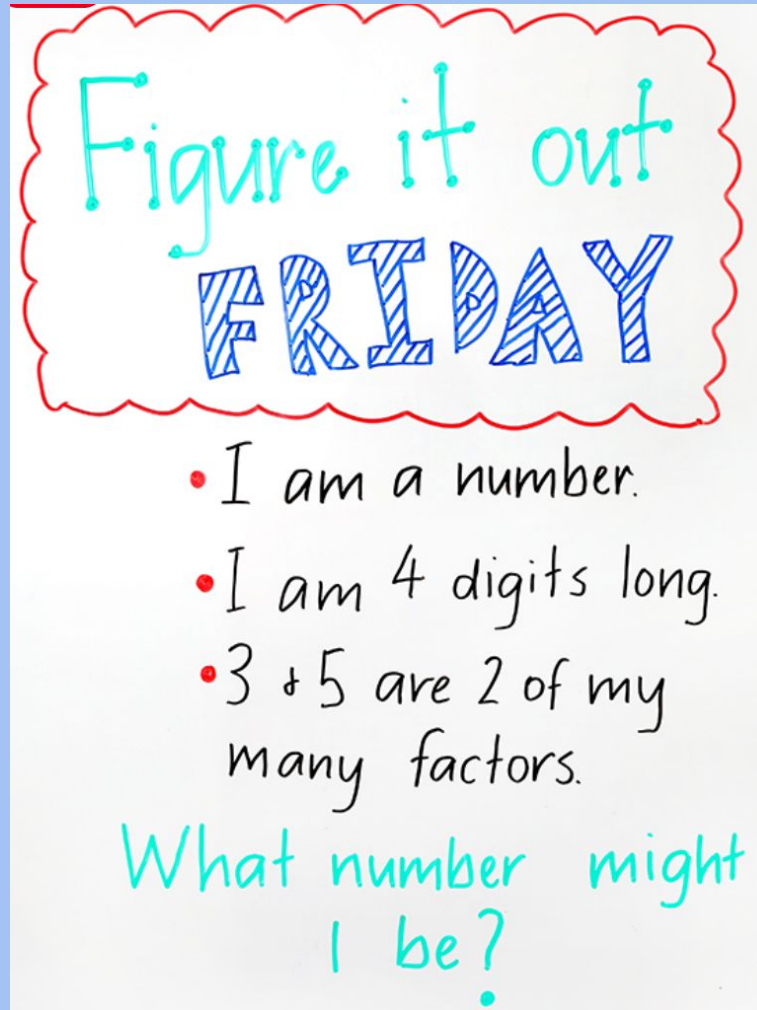 Figure it out
FRIDAY
• I am a number.
• I am 4 digits long.
• 3 & 5 are 2 of my
many factors.
What number might
I be?